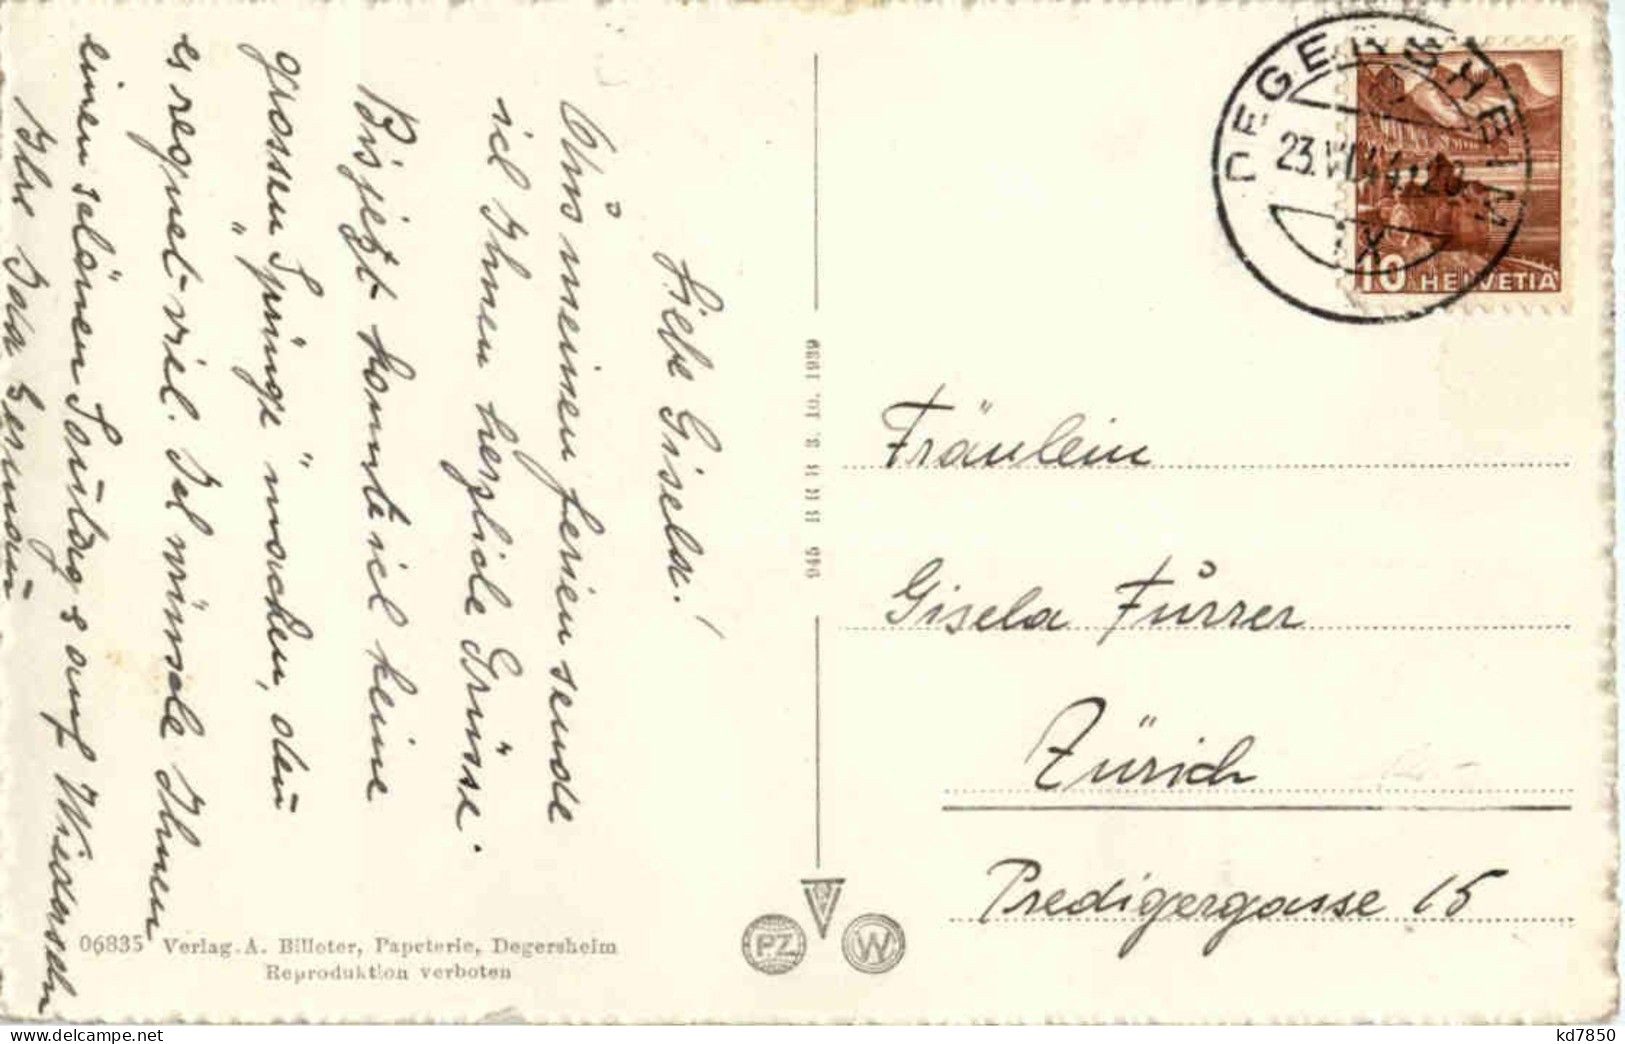 Liebe Gisela!
Aus meinen Ferien sende
ich Ihnen herzliche Grüsse.
Bis jetzt konnte ich keine
grossen „Sprünge" machen, den
es regnet viel. Ich wünsche Ihnen
einen schönen Sonntag & auf Wiedersehn
Ihre
DEGERSHEIM
23.VI.44.-20
10 HELVETIA
Fräulein
Gisela Furrer
Zürich
Predigergasse 15
945 BRB 3. 10. 1939
06835 Verlag. A. Billeter, Papeterie, Degersheim
Reproduktion verboten
PZ
W
kd7850